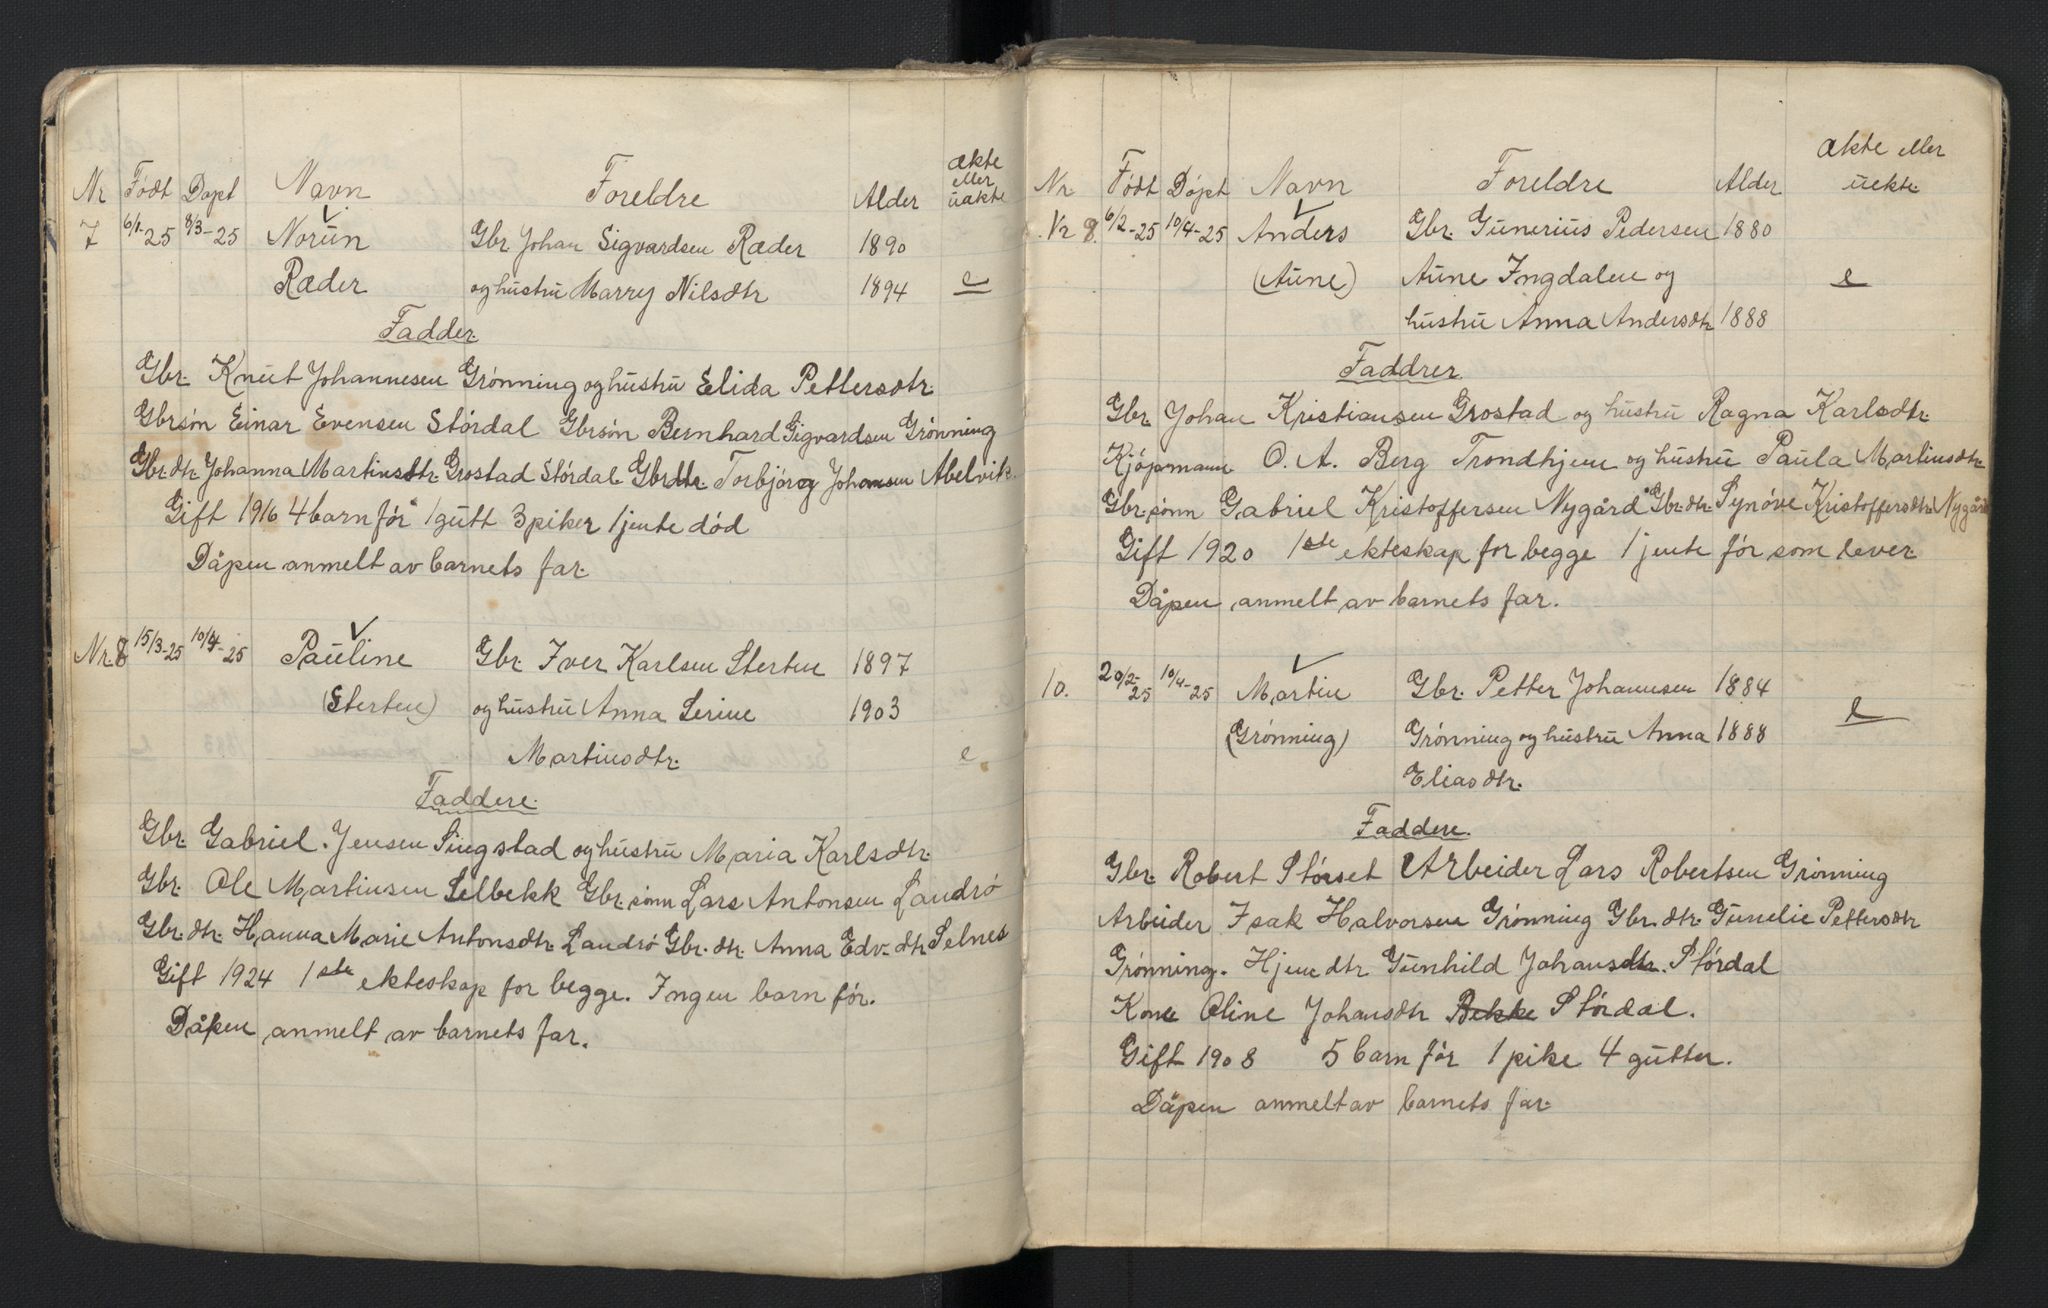 Nr Født Døpt Navn Foreldre Alder ækte eller uækte
7 6/1-25 8/3-25 Norun Gbr Johan Sigvardsen Ræder 1890
Ræder og hustru Marry Nilsdtr 1894 e
Fadder
Gbr. Knut Johannesen Grønning og hustru Elida Pettersdtr.
Gbrsøn Einar Evensen Størdal Gbrsøn Bernhard Sigvardsen Grønning
Gbr.dtr. Johanna Martinsdtr. Grostad Størdal Gbrdtr. Torbjørg Johansen Abelvik.
Gift 1916 4 barn før 1 gutt 3 piker 1 jente død
Dåpen anmelt av barnets far.
Nr. 8 15/3-25 10/4-25 Pauline Gbr. Iver Karlsen Sterten 1897
(Sterten) og hustru Anna Serine 1903
Martinsdtr. e
Faddere.
Gbr. Gabriel Jensen Singstad og hustru Maria Karlsdtr.
Gbr. Ole Martinsen Selbekk Gbr.sønn Lars Antonsen Landrø
Gbr.dtr. Hanna Marie Antonsdtr. Landrø Gbr.dtr. Anna Edv.dtr Selnes
Gift 1924 1ste ekteskap for begge. Ingen barn før.
Dåpen anmelt av barnets far.
Nr. Født Døpt Navn Foreldre Alder ækte eller uekte
Nr 8. 6/2-25 10/4-25 Anders Gbr. Gunerius Pedersen 1880
(Aune) Aune Ingdalen og e
hustru Anna Andersdtr 1888
Faddrer
Gbr. Johan Kristiansen Grostad og hustru Ragna Karlsdtr.
Kjøpmann O. A. Berg Trondhjem og hustru Paula Martinsdtr.
Gbr.sønn Gabriel Kristoffersen Nygård Gbr.dtr. Synøve Kristoffersdtr. Nygård
Gift 1920 1ste ekteskap for begge 1 jente før som lever
Dåpen anmelt av barnets far.
10. 20/2-25 10/4-25 Martin Gbr. Petter Johannsen 1884
(Grønning) Grønning og hustru Anna 1888 e
Eliasdtr.
Faddere.
Gbr. Robert Størset Arbeider Lars Robertsen Grønning
Arbeider Isak Halvorsen Grønning Gbr.dtr. Gunelie Pettersdtr
Grønning. Hjem dtr Gunhild Johansdtr. Størdal
Kone Oline Johansdtr Bekke Størdal.
Gift 1908 5 barn før 1 pike 4 gutter.
Dåpen anmelt av barnets far.